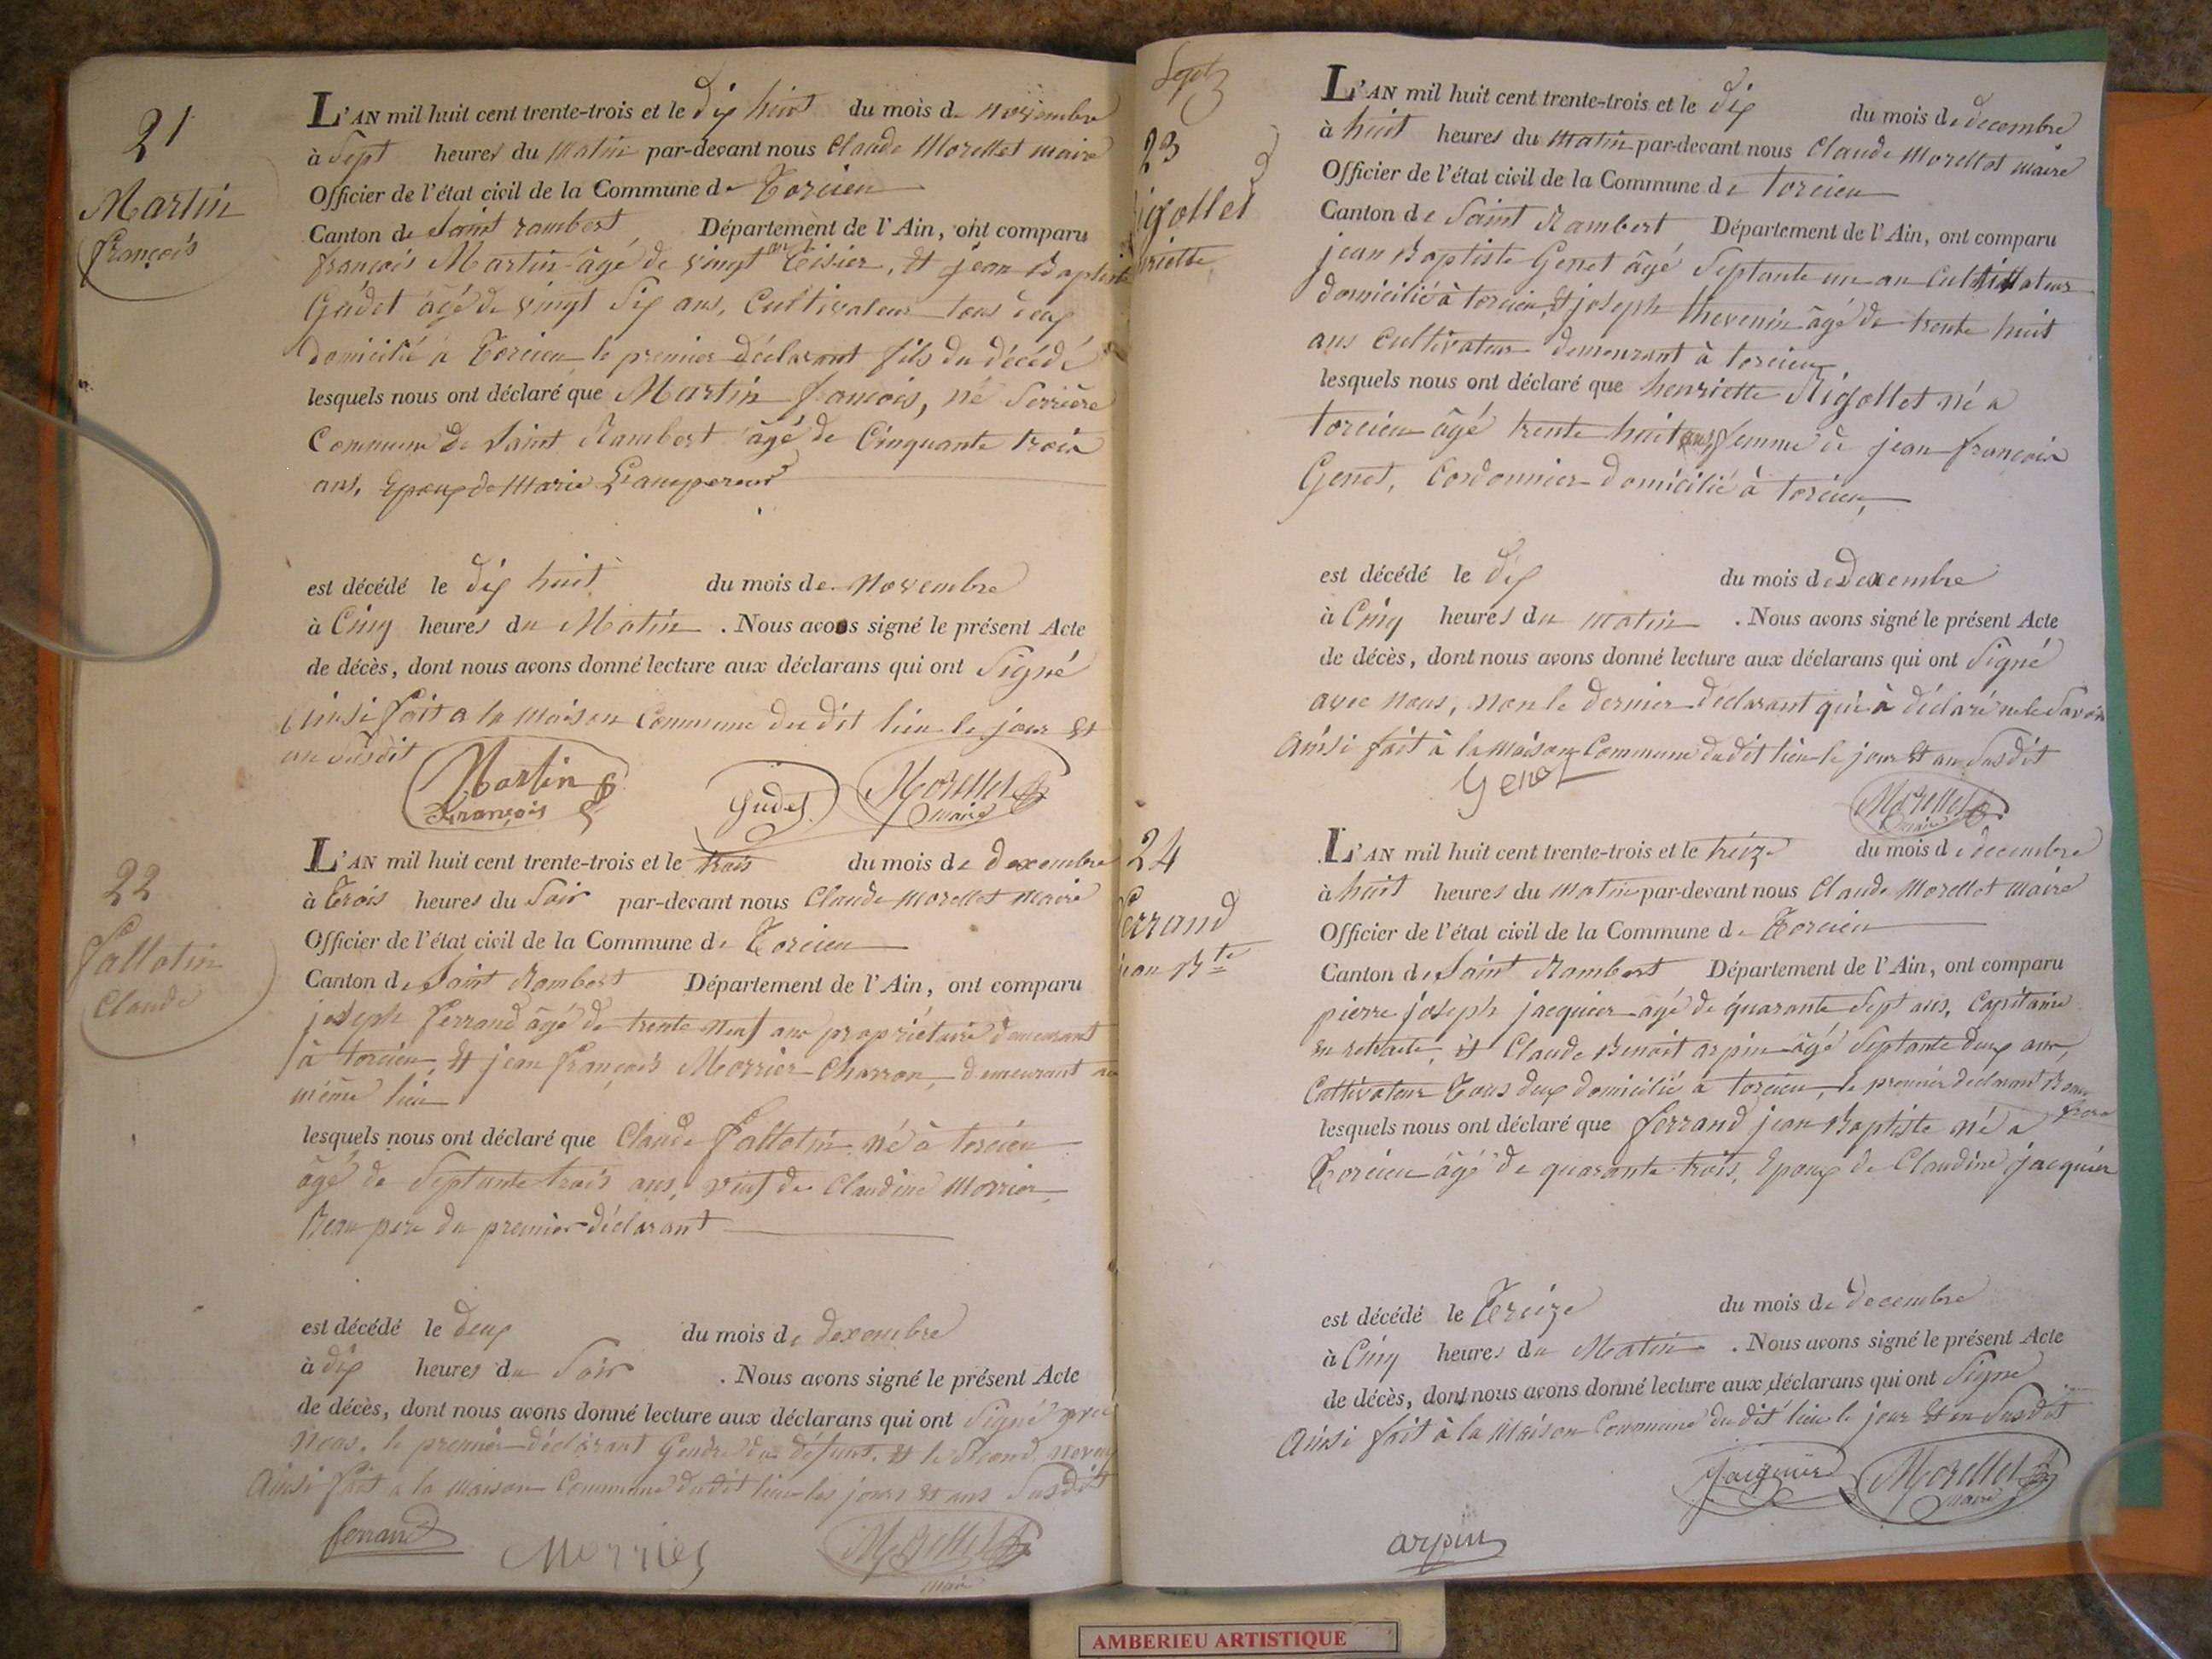 21
Martin
françois
L'AN mil huit cent trente-trois et le dix huit du mois de novembre
à Sept heures du Matin par-devant nous Claude Morellet maire
Officier de l'état civil de la Commune de Torcieu
Canton de Saint rambert Département de l'Ain, ont comparu
françois Martin âgé de vingt ans Tisier, et jean Baptiste
Gudet âgé de vingt six ans, Cultivateur tous deux
domicilié à Torcieu le premier déclarant fils du décédé
lesquels nous ont déclaré que Martin françois, né Serrière
Commune de Saint Rambert âgé de Cinquante trois
ans, Epoux de Marie
est décédé le dix huit du mois de novembre
à Cinq heures du Matin . Nous avons signé le présent Acte
de décès, dont nous avons donné lecture aux déclarans qui ont Signé
Ainsi fait a la maison Commune du dit lieu le jour et
an Susdit
Martin
François
Gudet
Morellet
maire
22
Pallotin
Claude
L'AN mil huit cent trente-trois et le trois du mois de dexembre
à Trois heures du Soir par-devant nous Claude Morellet maire
Officier de l'état civil de la Commune de Torcieu
Canton de Saint Rambert Département de l'Ain, ont comparu
joseph ferrand âgé de trente neuf ans propriétaire demeurant
à torcieu, et jean françois Morrier Charron, demeurant au
même lieu
lesquels nous ont déclaré que Claude Pallotin né à torcieu
âgé de Septante trois ans, veuf de Claudine Morrier
Beau pere du premier déclarant
est décédé le deux du mois de dexembre
à dix heures du Soir . Nous avons signé le présent Acte
de décès, dont nous avons donné lecture aux déclarans qui ont Signé avec
nous, le premier déclarant Gendre du défunt, et le Second neveu
Ainsi fait a la maison Commune dudit lieu les jours et ans Susdit
ferrand
Morrier
Morellet
maire
Sept
23
igollet
riette
L'AN mil huit cent trente-trois et le dix du mois de decembre
à huit heures du matin par-devant nous Claude Morellet maire
Officier de l'état civil de la Commune de torcieu
Canton de Saint Rambert Département de l'Ain, ont comparu
jean Baptiste Genet âgé Septante un an Cultivateur
domicilié à torcieu, et joseph thevenin âgé de trente huit
ans Cultivateur demeurant à torcieu
lesquels nous ont déclaré que henriette Rigollet né a
torcieu âgé trente huit ans, femme de jean françois
Genet, Cordonnier domicilié à torcieu,
est décédé le dix du mois de Dexembre
à Cinq heures du matin . Nous avons signé le présent Acte
de décès, dont nous avons donné lecture aux déclarans qui ont Signé
avec nous, non le dernier déclarant qui à déclaré ne le Savoir
Ainsi fait à la maison Commune dudit lieu le jour et an Susdit
Genet
Morellet
maire
24
ferrand
jean Bte
L'AN mil huit cent trente-trois et le treize du mois de decembre
à huit heures du matin par-devant nous Claude Morellet maire
Officier de l'état civil de la Commune de Torcieu
Canton de Saint Rambert Département de l'Ain, ont comparu
pierre joseph jacquier âgé de quarante Sept ans, Capitaine
en retraite, et Claude Benoit arpin âgé Septante deux ans,
Cultivateur Tous deux domicilié à torcieu, le premier declarant Beau
frere
lesquels nous ont déclaré que ferrand jean Baptiste né a
Torcieu âgé de quarante trois, Epoux de Claudine jacquier
est décédé le Treize du mois de decembre
à Cinq heures du Matin . Nous avons signé le présent Acte
de décès, dont nous avons donné lecture aux déclarans qui ont Signé
Ainsi fait à la Maison Commune du dit lieu le jour et an Susdit
Jacquier
Morellet
maire
arpin
AMBERIEU ARTISTIQUE